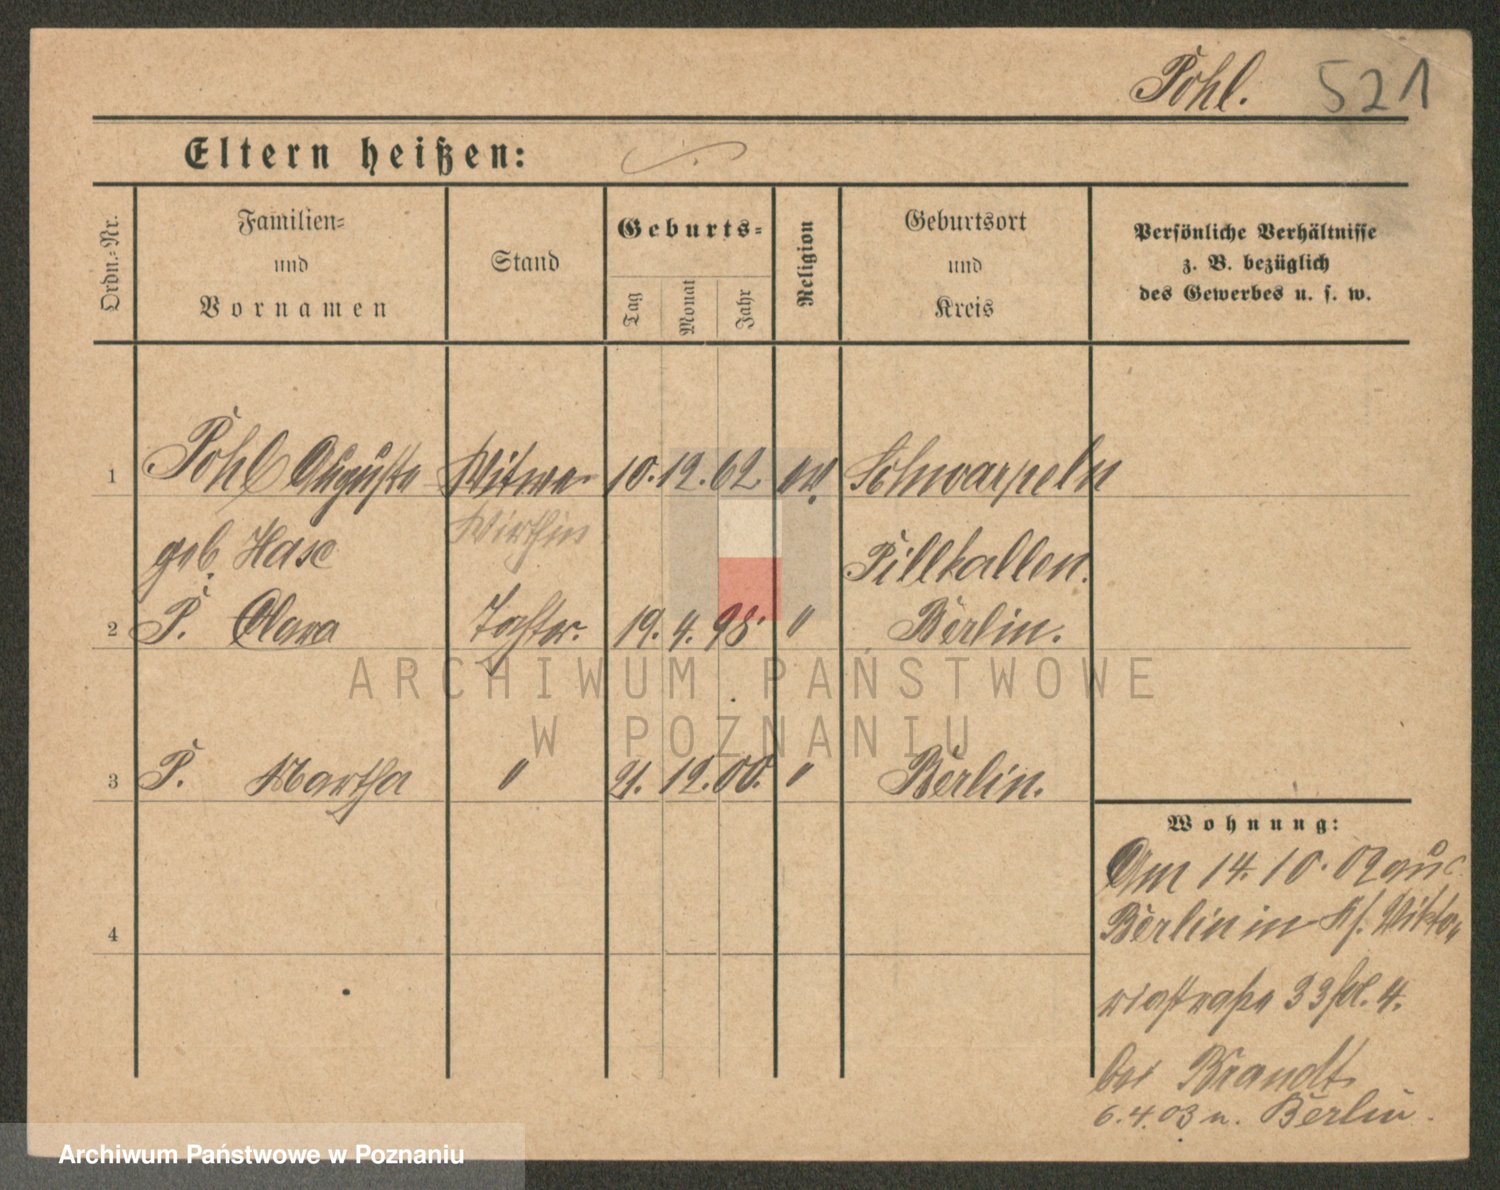 Pohl. 521
Eltern heißen:
Ordn.-Nr.
Familien-
und
Vornamen
Stand
Geburts-
Tag
Monat
Jahr
Religion
Geburtsort
und
Kreis
Persönliche Verhältnisse
z. B. bezüglich
des Gewerbes u. s. w.
1 Pohl Auguste Witwe 10. 12. 62 ev.
Wirthin
geb. Hase Pillkallen.
2 P. Clara Tochter. 19. 4. 98 " Berlin.
ARCHIWUM PAŃSTWOWE
W POZNANIU
3 P. Martha " 21. 12. 00. " Berlin.
Wohnung:
Am 14. 10. 02 aus
4
Berlin in Viktо-
riastraße 33 4.
bei Brandt
6.4.03 n. Berlin.
Archiwum Państwowe w Poznaniu